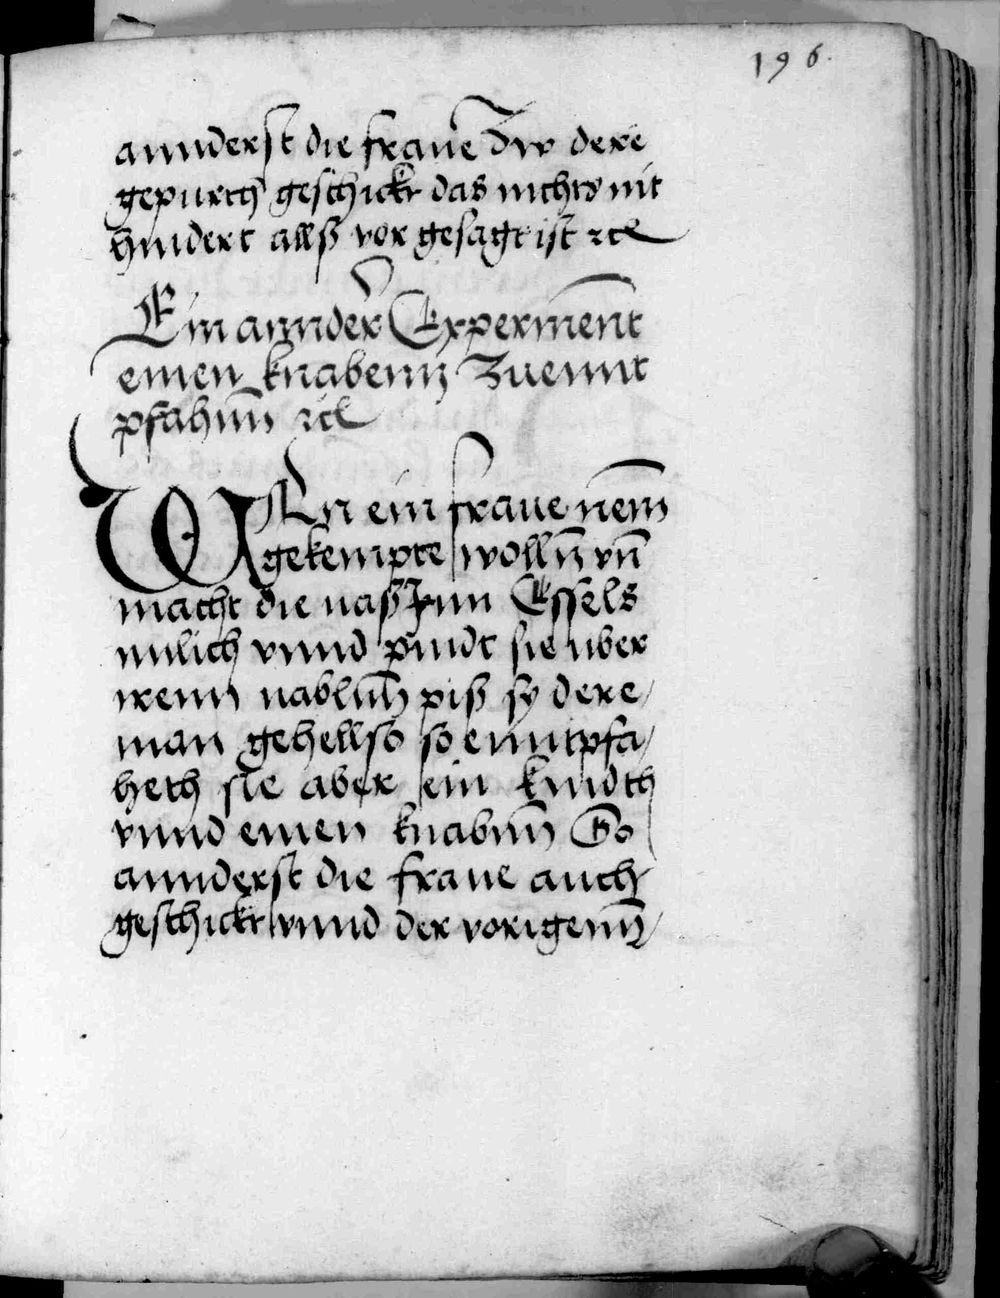 196.
annderst die fraue Zw dere
gepurth geschickt das nichts nit
hindert allß vor gesagt ist rcl
Ein annder Experiment
einen knabenn Zuennt
pfahnn rcl
WEn ein fraue nem
gekempte wolln̄ vn̄
macht die naß Inn Essels
milich vnnd pindt sie uber
irenn nabluh piß sy dere
man gehellso so enntpfa
heth sie aber ein kindth
vnnd einen knabnn So
annderst die fraue auch
geschickt vnnd der vorigenn